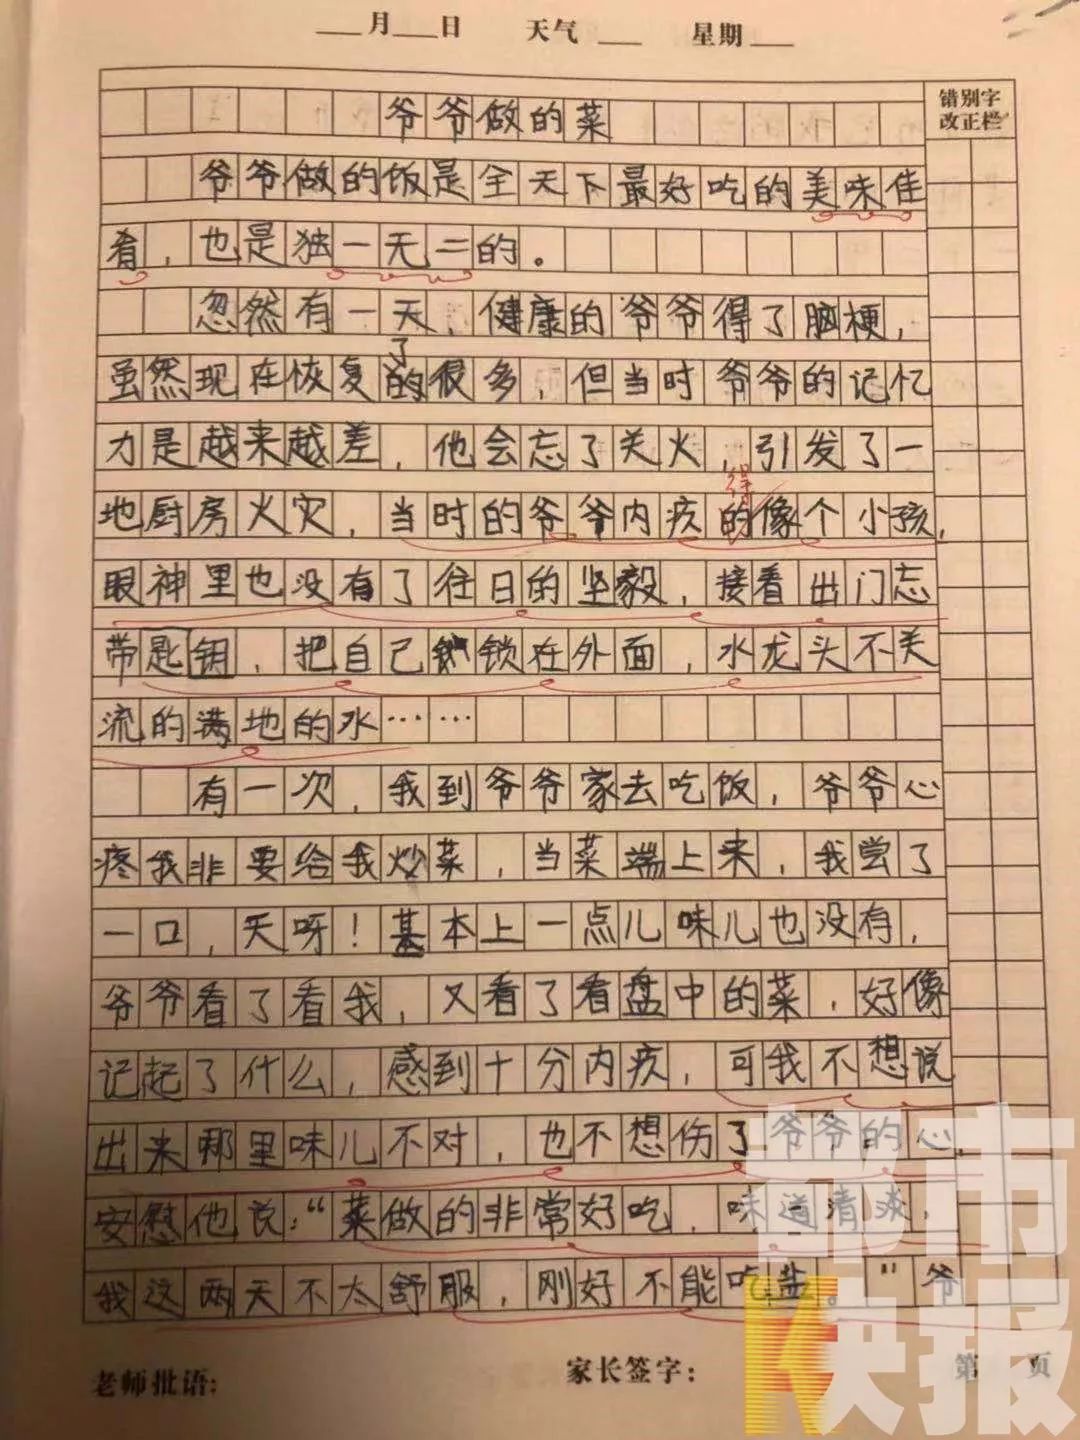 月 日 天气 星期
错别字
改正栏
爷爷做的菜
爷爷做的饭是全天下最好吃的美味佳
肴，也是独一无二的。
忽然有一天，健康的爷爷得了脑梗，
了
虽然现在恢复的很多，但当时爷爷的记忆
力是越来越差，他会忘了关火，引发了一
得
地厨房火灾，当时的爷爷内疚的像个小孩，
眼神里也没有了往日的坚毅，接着出门忘
带匙钥，把自己锁在外面，水龙头不关
流的满地的水……
有一次，我到爷爷家去吃饭，爷爷心
疼我非要给我炒菜，当菜端上来，我尝了
一口，天呀！基本上一点儿味儿也没有，
爷爷看了看我，又看了看盘中的菜，好像
记起了什么，感到十分内疚，可我不想说
出来哪里味儿不对，也不想伤了爷爷的心，
安慰他说：“菜做的非常好吃，味道清淡，
我这两天不太舒服，刚好不能吃盐。”爷
老师批语： 家长签字： 第 页
都市
快报